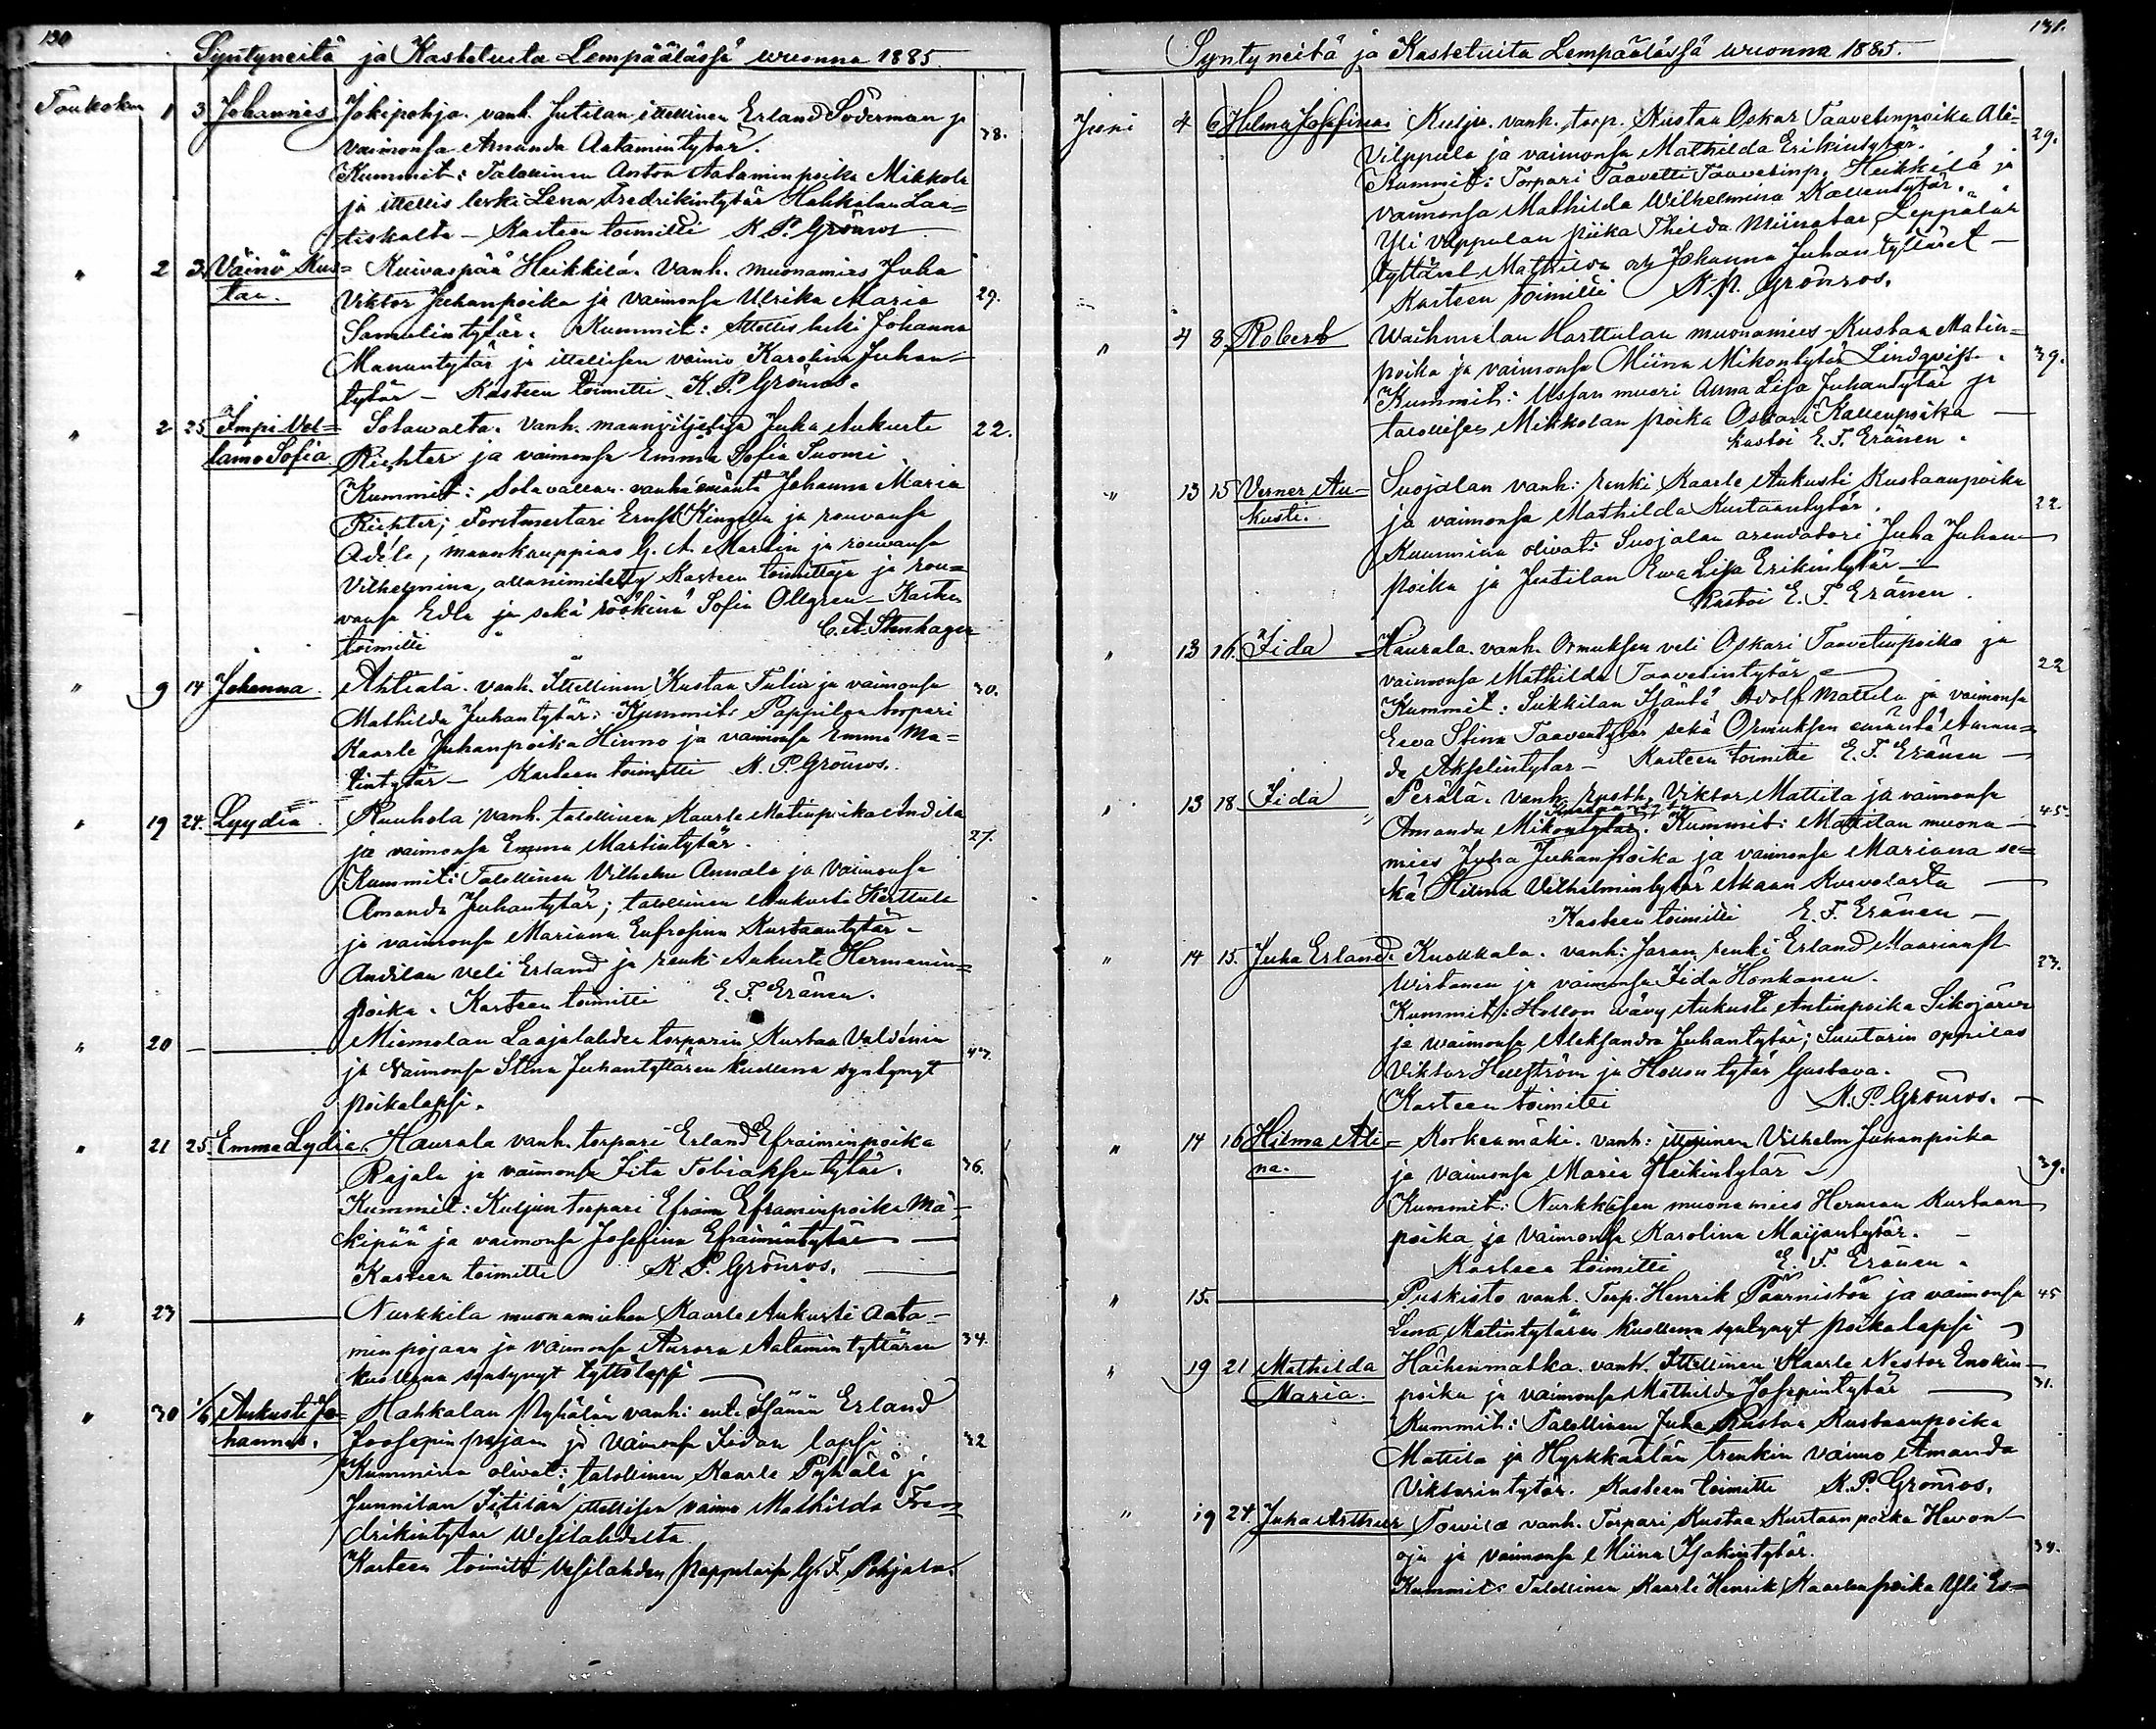 130
Syntyneitä ja Kastetuita Lempäälässä wuonna 1885.
Toukokuu 1 3 Johannes Jokipohja. vanh. Jutilan ittellinen Erland Söderman ja 38.
vaimonsa Amanda Aatamintytär.
Kummit: Talollinen Anton Aataminpoika Mikkola
ja ittellis leski Lena Fredrikintytär Hahkalan Laa=
tiskalta – Kasteen toimitti K. P. Grönros
" 2 3. Väinö Kus= Kuivaspää Heikkilä. Vanh. muonamies Juha
taa. Viktor Juhanpoika ja vaimonsa Ulrika Maria 29.
Samulintytär. Kummit: Ittellis leski Johanna
Manuntytär ja ittellisen vaimo Karolina Juhan=
tytär – Kasteen toimitti K. P. Grönros.
" 2 25 Impi Vel= Sotawalta. Vanh. maanviljelijä Juha Aukusti 22.
lamo Sofia. Richter ja vaimonsa Emma Sofia Suomi
Kummit: Sotavallan vanha emäntä Johanna Maria
Richter; Forstmestari Ernst Kingelin ja rouvansa
Adéle, maankauppias G. A. Martin ja rouvansa
Vilhelmina, allanimitetty Kasteen toimittaja ja rou=
vansa Edla ja sekä röökinä Sofia Ollgren – Kasteen
toimitti C. A. Stenhagen
" 9 14 Johanna. Ahtiala. vanh. Ittellinen Kustaa Tulin ja vaimonsa 30.
Mathilda Juhantytär: Kummit: Pappilan torpari
Kaarle Juhanpoika Hinno ja vaimonsa Emma Ma=
tintytär – Kasteen toimitti K. P. Grönros.
" 19 24. Lyydia. Ruuhola vanh. talollinen Kaarle Matinpoika Andila
ja vaimonsa Emma Martintytär. 27.
Kummit: Talollinen Vilhelm Annala ja vaimonsa
Amanda Juhantytär; talollinen Aukusti Kerttula
ja vaimonsa Mariana Eufrosina Kustaantytär –
Andilan veli Erland ja renki Aukusti Hermanin=
poika. Kasteen toimitti E. F. Eränen.
" 20 — Miemolan Laajalahden torparin Kustaa Valdénin 47.
ja Vaimonsa Stina Juhantyttären kuollena syntynyt
poikalapsi.
" 21 25. Emma Lydia. Haurala vanh. torpari Erland Efraiminpoika
Rajala ja vaimonsa Iita Tobiaksentytär. 36.
Kummit: Kuljun torpari Efraim Eframinpoika Mä=
kipää ja vaimonsa Josefina Efraimintytär —
Kasteen toimitti K. P. Grönros. —
" 23 — Nurkkila muonamiehen Kaarle Aukusti Aata=
minpojan ja vaimonsa Aurora Aatamin tyttären 34.
kuollena syntynyt tyttölapsi —
" 30 1/6 Aukusti Jo= Hahkalan Pyhälän vanh: ent. Isännän Erland
hannes. Joosepin pojan ja vaimonsa Iidan lapsi 32
Kummina olivat: talollinen Kaarle Pyhälä ja
Junnilan Iitilän ittellisen vaimo Mathilda Fre=
drikintytär Wesilahdelta.
Kasteen toimitti Vesilahden pappilassa G. F. Pohjala.
131.
Syntyneitä ja Kastetuita Lempäälässä wuonna 1885.
Juni 4 6 Hilma Josefina. Kulju. vanh. torp. Kustaa Oskar Taavetinpoika Ali=
Vilppula ja vaimonsa Mathilda Erikintytär. 29.
Kummit: Torpari Taavetti Taavetinp. Heikkilä ja
vaimonsa Mathilda Wilhelmina Kallentytär.
Yli vilppulan piika Thilda Miinatar Leppälän
tyttäret Mathilda ja Johanna Juhantyttäret –
Kasteen toimitti K. P. Grönros.
" 4 8. Robert Waihmalan Harttulan muonamies Kustaa Matin=
poika ja vaimonsa Miina Mikontytär Lindqvist. 39.
Kummit: Ussan muori Anna Lisa Juhantytär ja
talollisen Mikkolan poika Oskari Kallenpoika —
kastoi E. F. Eränen.
" 13 15 Verner Au= Suojalan vanh: renki Kaarle Aukusti Kustaanpoika
kusti. ja vaimonsa Mathilda Kustaantytär. 22.
Kummina olivat: Suojalan arendatori Juha Juhan=
poika ja Jutilan Ewa Lisa Erikintytär —
Kastoi E. F. Eränen.
" 13 16. Iida Haurala. vanh. Ormuksen veli Oskari Taavetinpoika ja
vaimonsa Mathilda Taavetintytär 22
Kummit: Sukkilan Isäntä Adolf Mattila ja vaimonsa
Eeva Stina Taavetintytär sekä Ormuksen emäntä Aman=
da Akselintytär – Kasteen toimitti E. F. Eränen —
" 13 18. Iida Perälä. Vanh. Viktor Mattila ja vaimonsa
Amanda Mikontytär. Kummit: Mattilan muona — 45.
mies Juha Juhanpoika ja vaimonsa Mariana se=
kä Hilma Vilhelmintytär Kurvolasta —
Kasteen toimitti E. F. Eränen —
" 14 15. Juha Erland. Kuokkala. vanh: renki Erland
Wirtanen ja vaimonsa Iida Honkanen. 23.
Kummit: Hollon vävy Aukusti Antinpoika Sikojärvi
ja waimonsa Aleksandra Juhantytär; Suutarin oppilas
Viktor Hellström ja Hollon tytär Gustava.
Kasteen toimitti K. P. Grönros. –
" 14 16 Hilma Ali= Korkeamäki. vanh: ittellinen Vilhelm Juhanpoika
na. ja vaimonsa Maria Heikintytär 39.
Kummit: Nurkkasen muonamies Herman Kustaan
poika ja Vaimonsa Karolina Maijantytär. –
Kasteen toimitti E. F. Eränen.
" 15. — Puskisto vanh. Torp. Henrik Paarnistön ja vaimonsa 45
Lena Matintytären kuollena syntynyt poikalapsi
" 19 21 Mathilda Häihenmatka. vanh. Ittellinen Kaarle Nestor Enokin=
Maria. poika ja vaimonsa Mathilda Josepintytär — 31.
Kummit: Talollinen Juha Kustaa Kustaanpoika
Mattila ja Hyrkkäälän trenkin vaimo Amanda
Viktorintytär. Kasteen toimitti K. P. Grönros.
" 19 24. Juha Arthur Towila vanh. Torpari Kustaa Kustaanpoika Havon=
oja ja vaimonsa Miina Isakintytär. 34.
Kummit: Talollinen Kaarle Henrik Kaarlenpoika Yli Es=